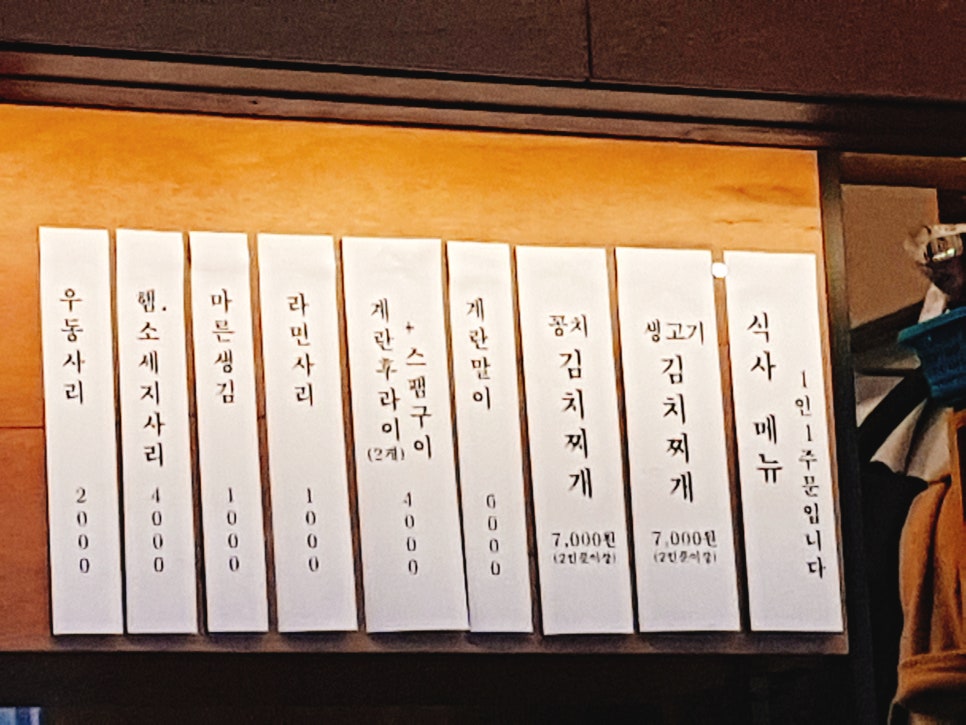 우동사리
2000
햄.소세지사리
4000
마른생김
1000
라면사리
1000
계란후라이
(2개)
+스팸구이
4000
계란말이
6000
꽁치
김치찌개
7,000원
(2인분이상)
생고기
김치찌개
7,000원
(2인분이상)
식사 메뉴
1인1주문입니다